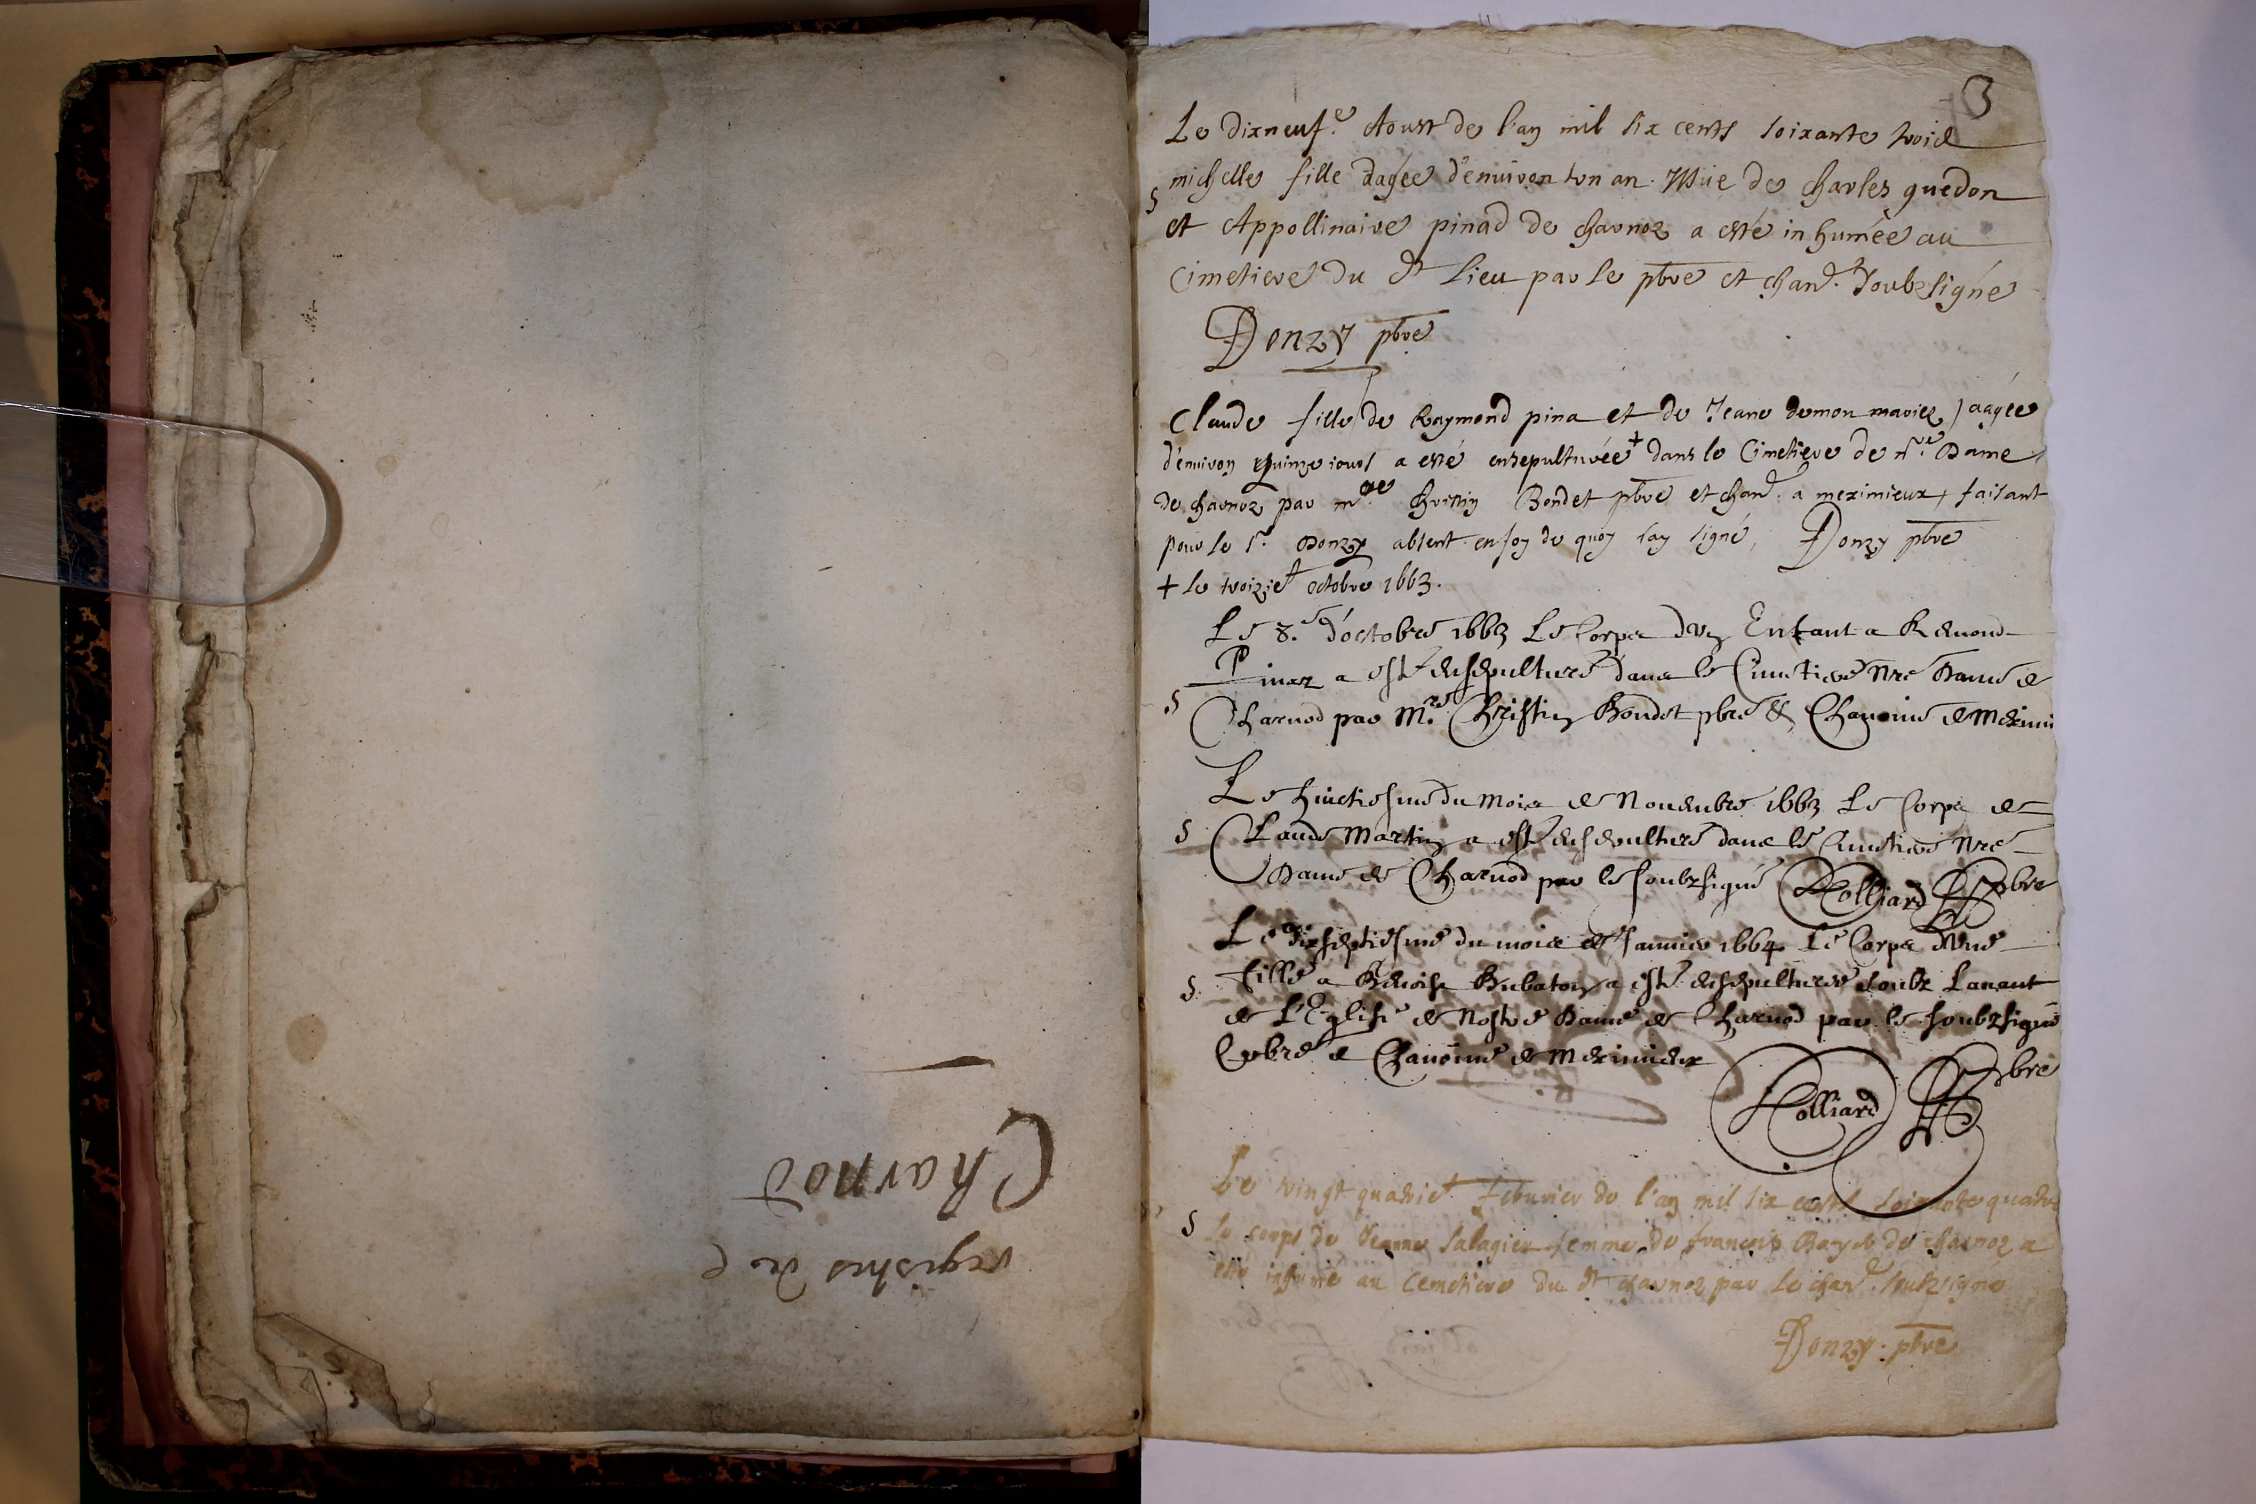 registres de
Charnod
3
Le dixneuf.e Aoust de l'an mil six cents soixante trois
§ michelle fille dagée d'enuiron un an. de charles guedon
et Appollinaire pinad de charnoz a esté inhumée au
Cimetiere du dt lieu par le pbre et chane. soubsigné
Donzy pbre
Claude fille de Raymond pina et de Jeane demon mariez, aagée
d'enuiron quinze iours a esté ensepulturée + dans le Cimetiere de nre. Dame
de charnoz par mre Christin Bondet pbre et chane. a meximieux, faisant
pour le sr. Donzy absent en foy de quoy iay signé, Donzy pbre
+ le troiziet octobre 1663.
Le 8.e d'octobre 1663 Le Corps d'un Enfant a Remond
Pinaz a esté ensepulturé dans le Cimetiere Nre Dame de
§ Charnod par Mre. Christin Bondet pbre & Chanoine de Meximi
Le huictiesme du mois de Nouembre 1663 Le Corps de
§ Claude Martin a esté ensepulturé dans le Cimetiere Nre
Dame de Charnod par le soubzsigné Rolliard pbre
Le dixseptiesme du mois de Januier 1664 Le Corps d'une
§ fille a Benoist Bubaton a esté ensepulturée soubz Lauant
de L'Eglise de Nostre Dame de Charnod par le soubzsigné
pbre & Chanoine de Meximieux
Rolliard pbre
Le vingt quatriet feburier de l'an mil six cents soixante quatre
§ le corps de Jeanne Salagier femme de francois de charnoz a
esté inhumé au Cemetiere du dt charnoz par le chane. soubzsigné
Donzy. pbre